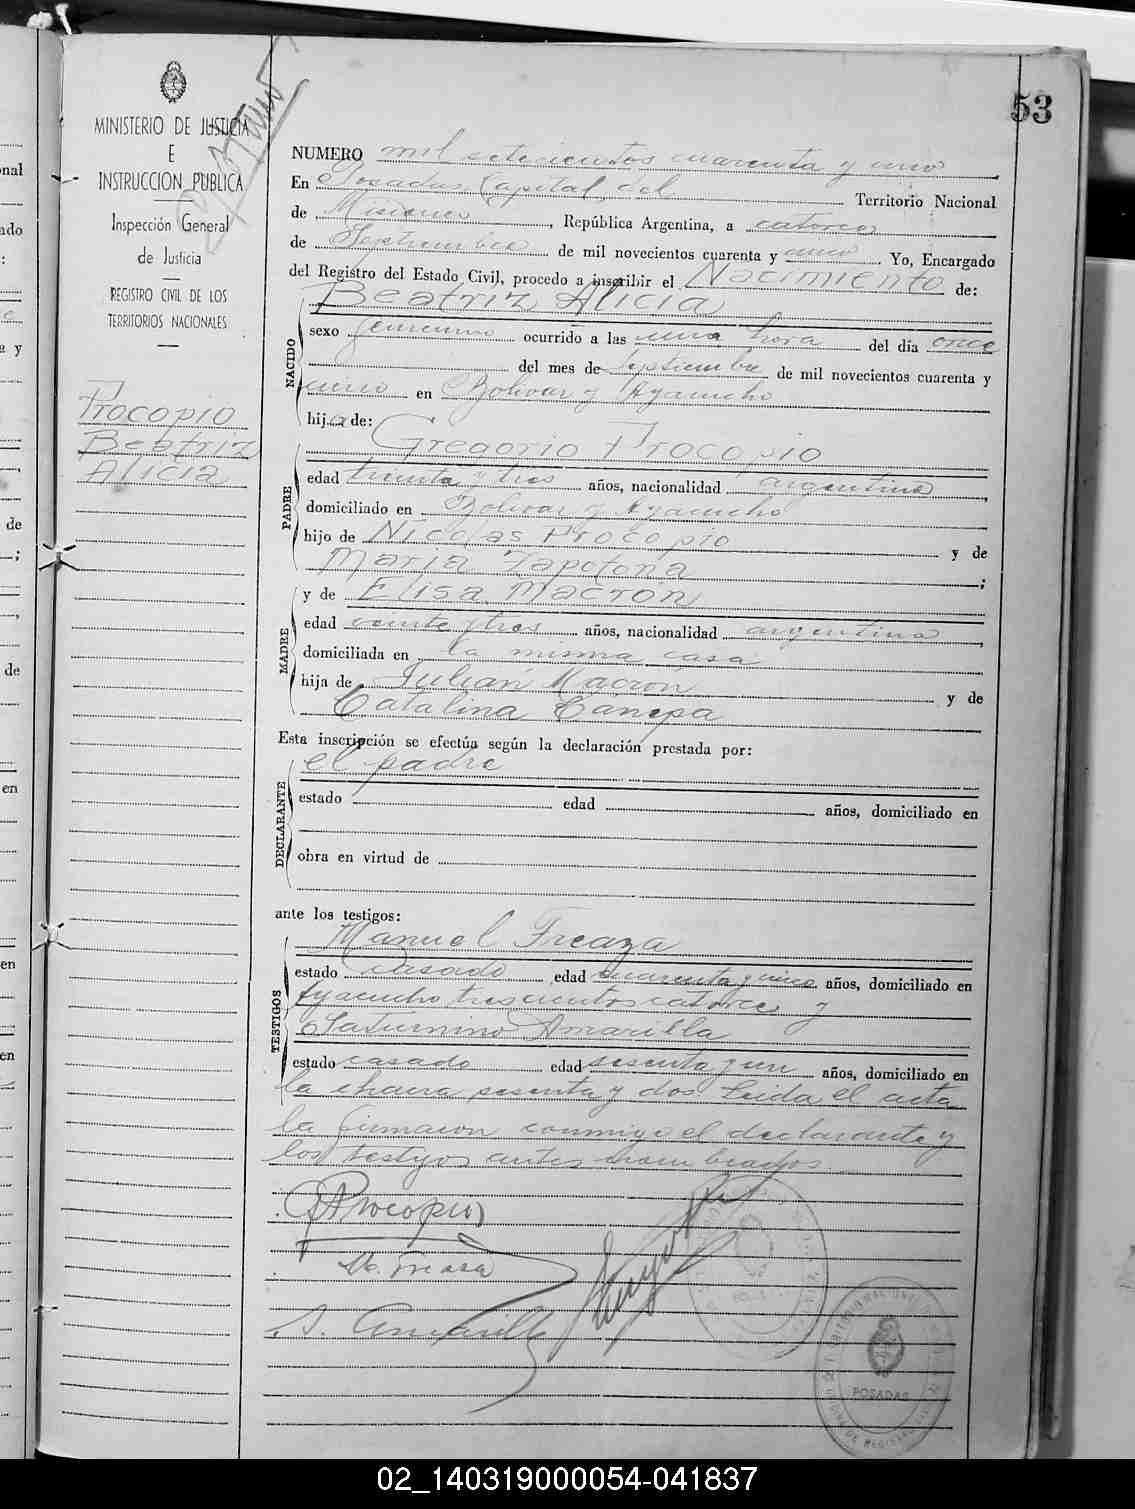 53
MINISTERIO DE JUSTICIA
E
INSTRUCCION PUBLICA
Inspección General
de Justicia
REGISTRO CIVIL DE LOS
TERRITORIOS NACIONALES
Procopio
Beatriz
Alicia
NUMERO mil setecientos cuarenta y uno
En Posadas, Capital del Territorio Nacional
de Misiones, República Argentina, a catorce
de Septiembre de mil novecientos cuarenta y uno Yo, Encargado
del Registro del Estado Civil, procedo a inscribir el Nacimiento de:
Beatriz Alicia
NACIDO
sexo femenino ocurrido a las una hora del día once
del mes de Septiembre de mil novecientos cuarenta y
uno en Bolivar y Ayacucho
hija de:
Gregorio Procopio
PADRE
edad treinta y tres años, nacionalidad argentina
domiciliado en Bolivar y Ayacucho
hijo de Nicolas Procopio y de
Maria Zapotona;
y de Elisa Macron
MADRE
edad veinte y tres años, nacionalidad argentina,
domiciliada en la misma casa
hija de Julián Macron y de
Catalina Canepa
Esta inscripción se efectúa según la declaración prestada por:
el padre
DECLARANTE
estado edad años, domiciliado en
obra en virtud de
ante los testigos:
Manuel Freaza
TESTIGOS
estado casado edad cuarenta y cinco años, domiciliado en
Ayacucho trescientos catorce y
Saturnino Amarilla
estado casado edad sesenta y un años, domiciliado en
la chacra sesenta y dos. Leida el acta
la firmaron conmigo el declarante y
los testigos antes nombrados
G Procopio
M. Freaza
S. Amarilla
POSADAS
02_140319000054-041837